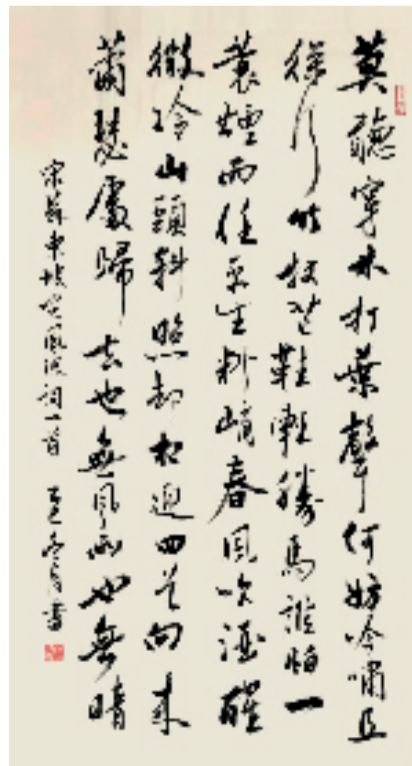 莫聽穿林打葉聲何妨吟嘯且
徐行竹杖芒鞋輕勝馬誰怕一
蓑煙雨任平生料峭春風吹酒醒
微冷山頭斜照却相迎回首向來
蕭瑟處歸去也無風雨也無晴
宋蘇東坡定風波詞一首 乙巳冬月書